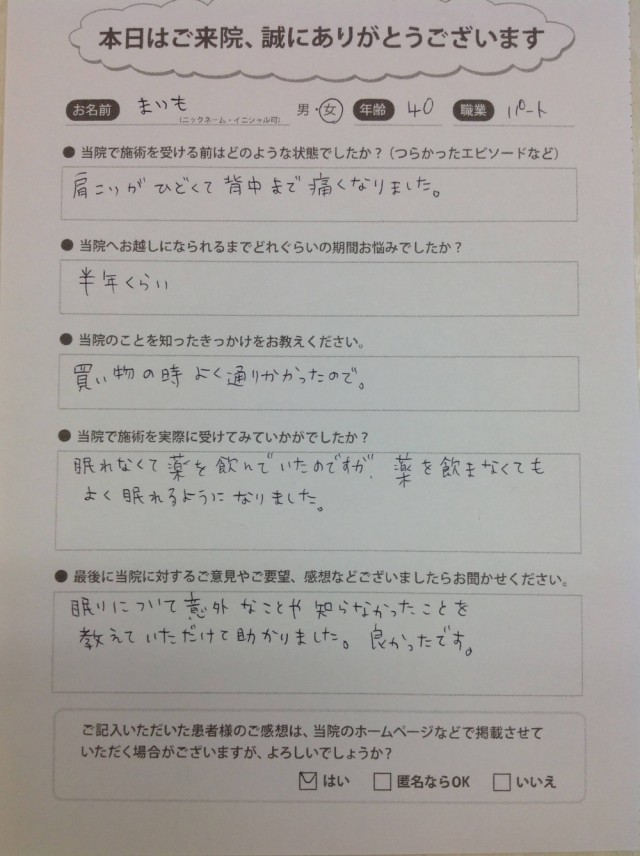 本日はご来院、誠にありがとうございます
お名前 まいも 男・女 年齢 40 職業 パート
(ニックネーム・イニシャル可)
● 当院で施術を受ける前はどのような状態でしたか？（つらかったエピソードなど）
肩こりがひどくて背中まで痛くなりました。
● 当院へお越しになられるまでどれぐらいの期間お悩みでしたか？
半年くらい
● 当院のことを知ったきっかけをお教えください。
買い物の時よく通りかかったので。
● 当院で施術を実際に受けてみていかがでしたか？
眠れなくて薬を飲んでいたのですが、薬を飲まなくても
よく眠れるようになりました。
● 最後に当院に対するご意見やご要望、感想などございましたらお聞かせください。
眠りについて意外なことや知らなかったことを
教えていただけて助かりました。良かったです。
ご記入いただいた患者様のご感想は、当院のホームページなどで掲載させて
いただく場合がございますが、よろしいでしょうか？
はい 匿名ならOK いいえ